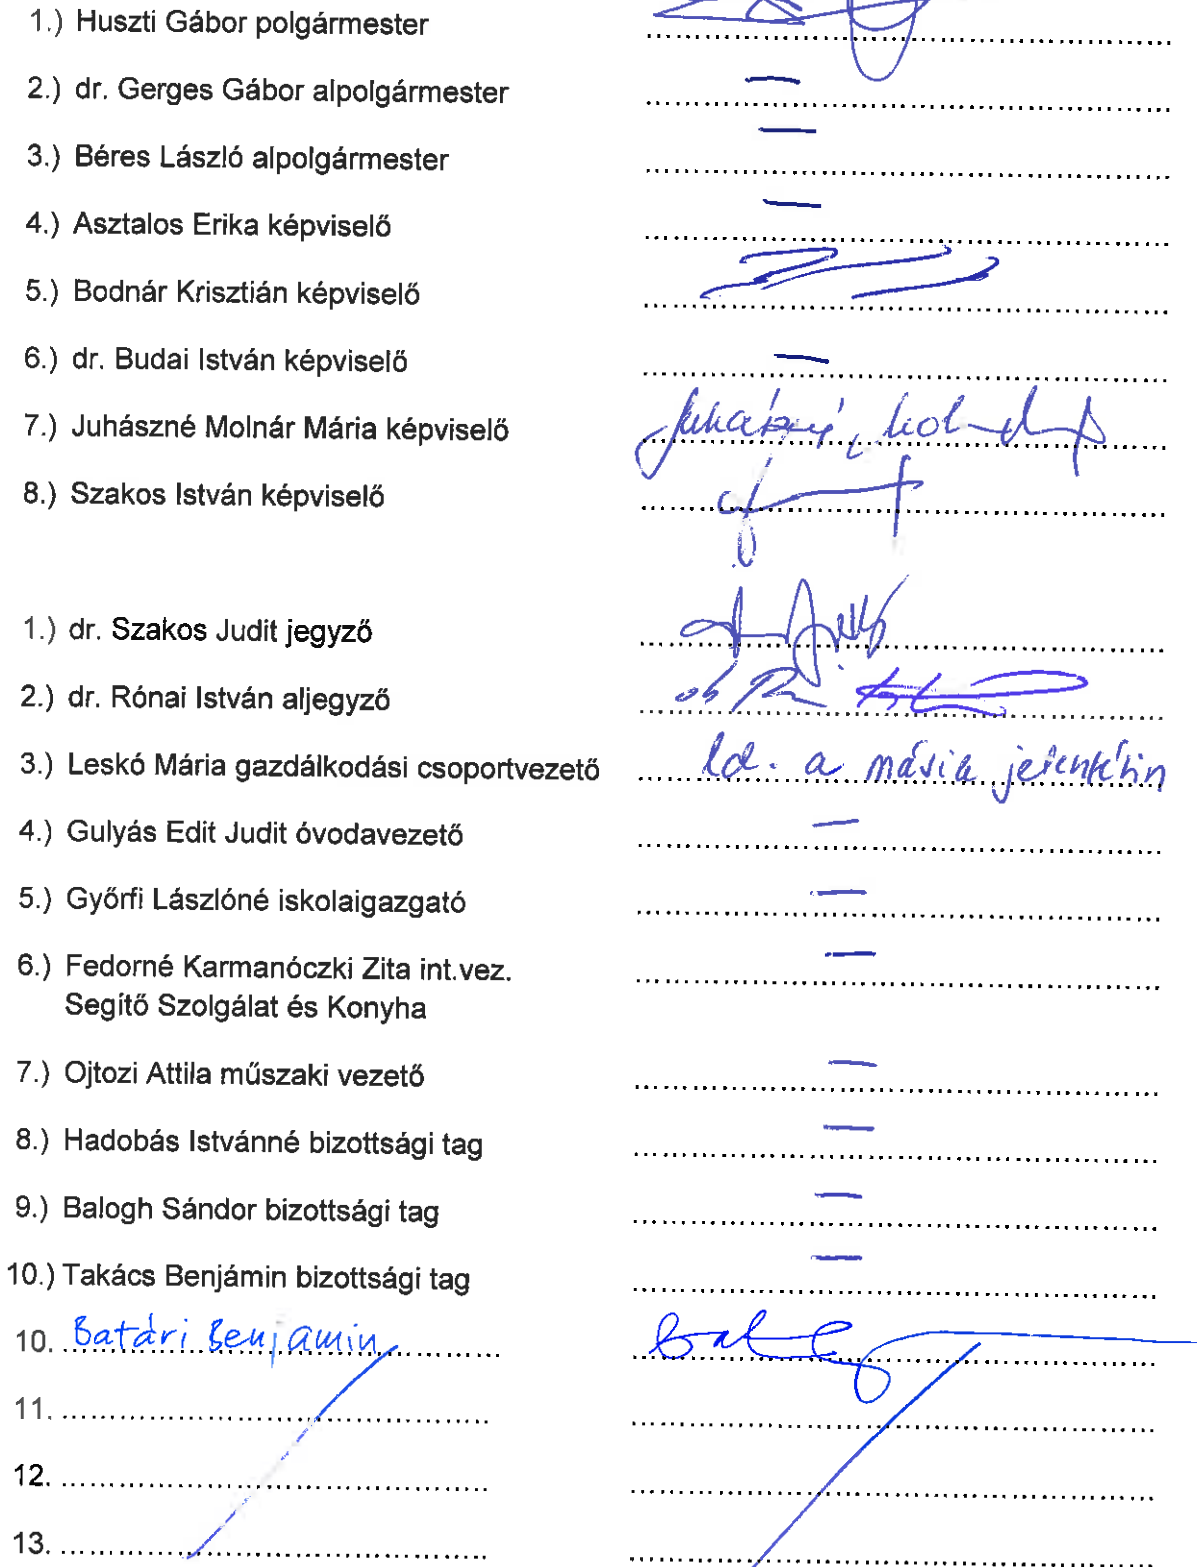 1.) Huszti Gábor polgármester ..........
2.) dr. Gerges Gábor alpolgármester — ..........
3.) Béres László alpolgármester — ..........
4.) Asztalos Erika képviselő — ..........
5.) Bodnár Krisztián képviselő ..........
6.) dr. Budai István képviselő — ..........
7.) Juhászné Molnár Mária képviselő ..........
8.) Szakos István képviselő ..........
1.) dr. Szakos Judit jegyző ..........
2.) dr. Rónai István aljegyző ..........
3.) Leskó Mária gazdálkodási csoportvezető ld. a másik
4.) Gulyás Edit Judit óvodavezető — ..........
5.) Győrfi Lászlóné iskolaigazgató — ..........
6.) Fedorné Karmanóczki Zita int.vez. — ..........
Segítő Szolgálat és Konyha
7.) Ojtozi Attila műszaki vezető — ..........
8.) Hadobás Istvánné bizottsági tag — ..........
9.) Balogh Sándor bizottsági tag — ..........
10.) Takács Benjámin bizottsági tag — ..........
10. Batári Benjamin ..........
11. ..........
12. ..........
13. ..........